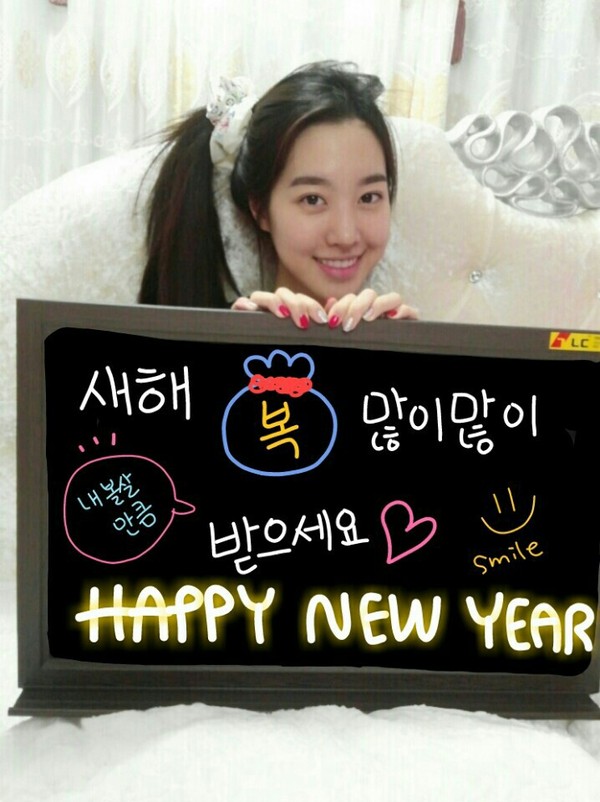 새해 복 많이많이
내 볼살
만큼
받으세요
smile
HAPPY NEW YEAR
LC